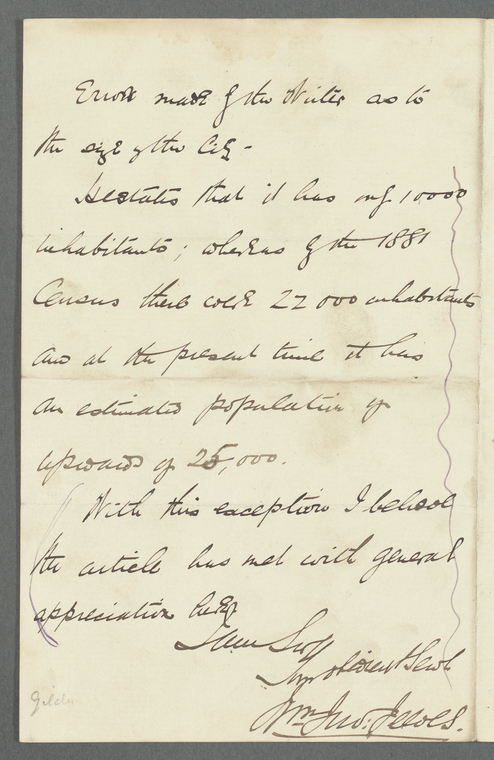 Error made by the Writer as to
the size of the City -
He states that it has only 10000
inhabitants; whereas by the 1881
Census there were 22 000 inhabitants
and at the present time it has
an estimated population of
upwards of 25,000.
With this exception I believe
the article has met with general
appreciation here.
I am Sir
Your obedient Servt
Wm Jno: